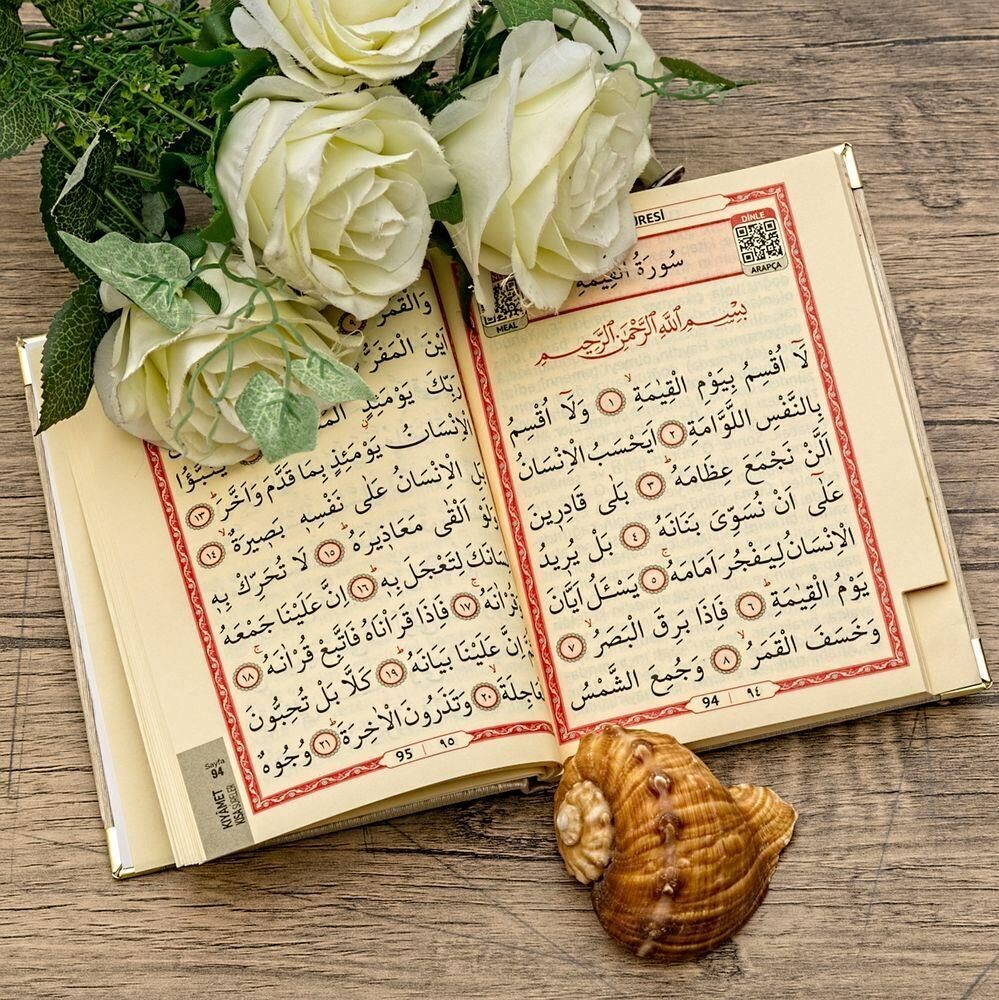 RESİ
DİNLE
سُورَةُ الْقِيٰمَةِ
ARAPÇA
MEAL
بِسْمِ اللّٰهِ الرَّحْمٰنِ الرَّحِيمِ
لَٓا اُقْسِمُ بِيَوْمِ الْقِيٰمَةِۙ ﴿١﴾ وَلَٓا اُقْسِمُ
بِالنَّفْسِ اللَّوَّامَةِ ﴿٢﴾ اَيَحْسَبُ الْاِنْسَانُ
اَلَّنْ نَجْمَعَ عِظَامَهُ ﴿٣﴾ بَلٰى قَادِرِينَ
عَلٰٓى اَنْ نُسَوِّىَ بَنَانَهُ ﴿٤﴾ بَلْ يُرِيدُ
الْاِنْسَانُ لِيَفْجُرَ اَمَامَهُۚ ﴿٥﴾ يَسْـَٔلُ اَيَّانَ
يَوْمُ الْقِيٰمَةِۜ ﴿٦﴾ فَاِذَا بَرِقَ الْبَصَرُۙ ﴿٧﴾
وَخَسَفَ الْقَمَرُۙ ﴿٨﴾ وَجُمِعَ الشَّمْسُ
94 | ٩٤
وَالْقَمَرُ
اَيْنَ الْمَفَرُّ
رَبِّكَ يَوْمَئِذٍ
يُنَبَّؤُا الْاِنْسَانُ يَوْمَئِذٍ بِمَا قَدَّمَ وَاَخَّرَۜ ﴿١٣﴾
بَلِ الْاِنْسَانُ عَلٰى نَفْسِهِ بَصِيرَةٌۙ ﴿١٤﴾
وَلَوْ اَلْقٰى مَعَاذِيرَهُۜ ﴿١٥﴾ لَا تُحَرِّكْ بِهِ
لِسَانَكَ لِتَعْجَلَ بِهِۜ ﴿١٦﴾ اِنَّ عَلَيْنَا جَمْعَهُ
وَقُرْاٰنَهُۚ ﴿١٧﴾ فَاِذَا قَرَاْنَاهُ فَاتَّبِعْ قُرْاٰنَهُۚ ﴿١٨﴾
ثُمَّ اِنَّ عَلَيْنَا بَيَانَهُۜ ﴿١٩﴾ كَلَّا بَلْ تُحِبُّونَ
الْعَاجِلَةَۙ ﴿٢٠﴾ وَتَذَرُونَ الْاٰخِرَةَۜ ﴿٢١﴾ وُجُوهٌ
95 | ٩٥
Sayfa
94
KIYÂMET
KISA SÛRELER